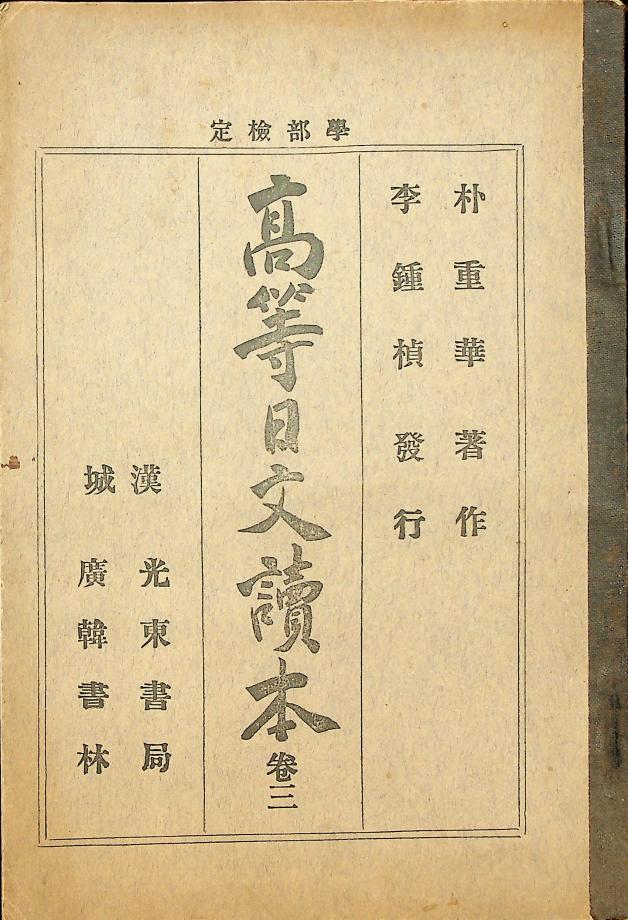 學部檢定
朴重華著作
李鍾楨發行
高等日文讀本卷三
漢城
光東書局
廣韓書林